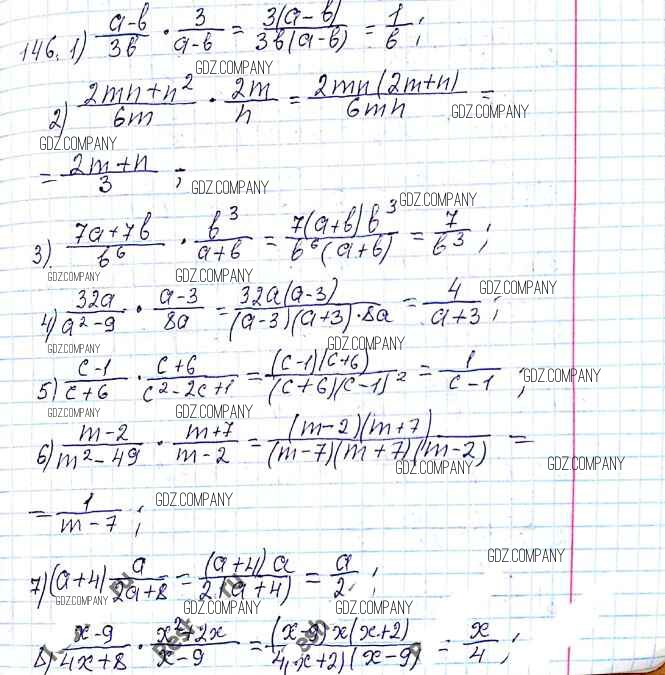 146. 1) (a-b)/(3b) · 3/(a-b) = (3(a-b))/(3b(a-b)) = 1/b ;
GDZ.COMPANY
2) (2mn+n²)/(6m) · (2m)/n = (2mn(2m+n))/(6mn) =
GDZ.COMPANY
GDZ.COMPANY
= (2m+n)/3 ;
GDZ.COMPANY
GDZ.COMPANY
3) (7a+7b)/(b⁶) · (b³)/(a+b) = (7(a+b)b³)/(b⁶(a+b)) = 7/(b³) ;
GDZ.COMPANY GDZ.COMPANY
GDZ.COMPANY
4) (32a)/(a²-9) · (a-3)/(8a) = (32a(a-3))/((a-3)(a+3)·8a) = 4/(a+3) ;
GDZ.COMPANY GDZ.COMPANY
5) (c-1)/(c+6) · (c+6)/(c²-2c+1) = ((c-1)(c+6))/((c+6)(c-1)²) = 1/(c-1) ;
GDZ.COMPANY
GDZ.COMPANY GDZ.COMPANY
6) (m-2)/(m²-49) · (m+7)/(m-2) = ((m-2)(m+7))/((m-7)(m+7)(m-2)) =
GDZ.COMPANY GDZ.COMPANY
= 1/(m-7) ;
GDZ.COMPANY
GDZ.COMPANY
7) (a+4) a/(2a+8) = ((a+4)a)/(2(a+4)) = a/2 ;
GDZ.COMPANY GDZ.COMPANY GDZ.COMPANY
8) (x-9)/(4x+8) · (x²+2x)/(x-9) = ((x-9)·x(x+2))/(4(x+2)(x-9)) = x/4 ;